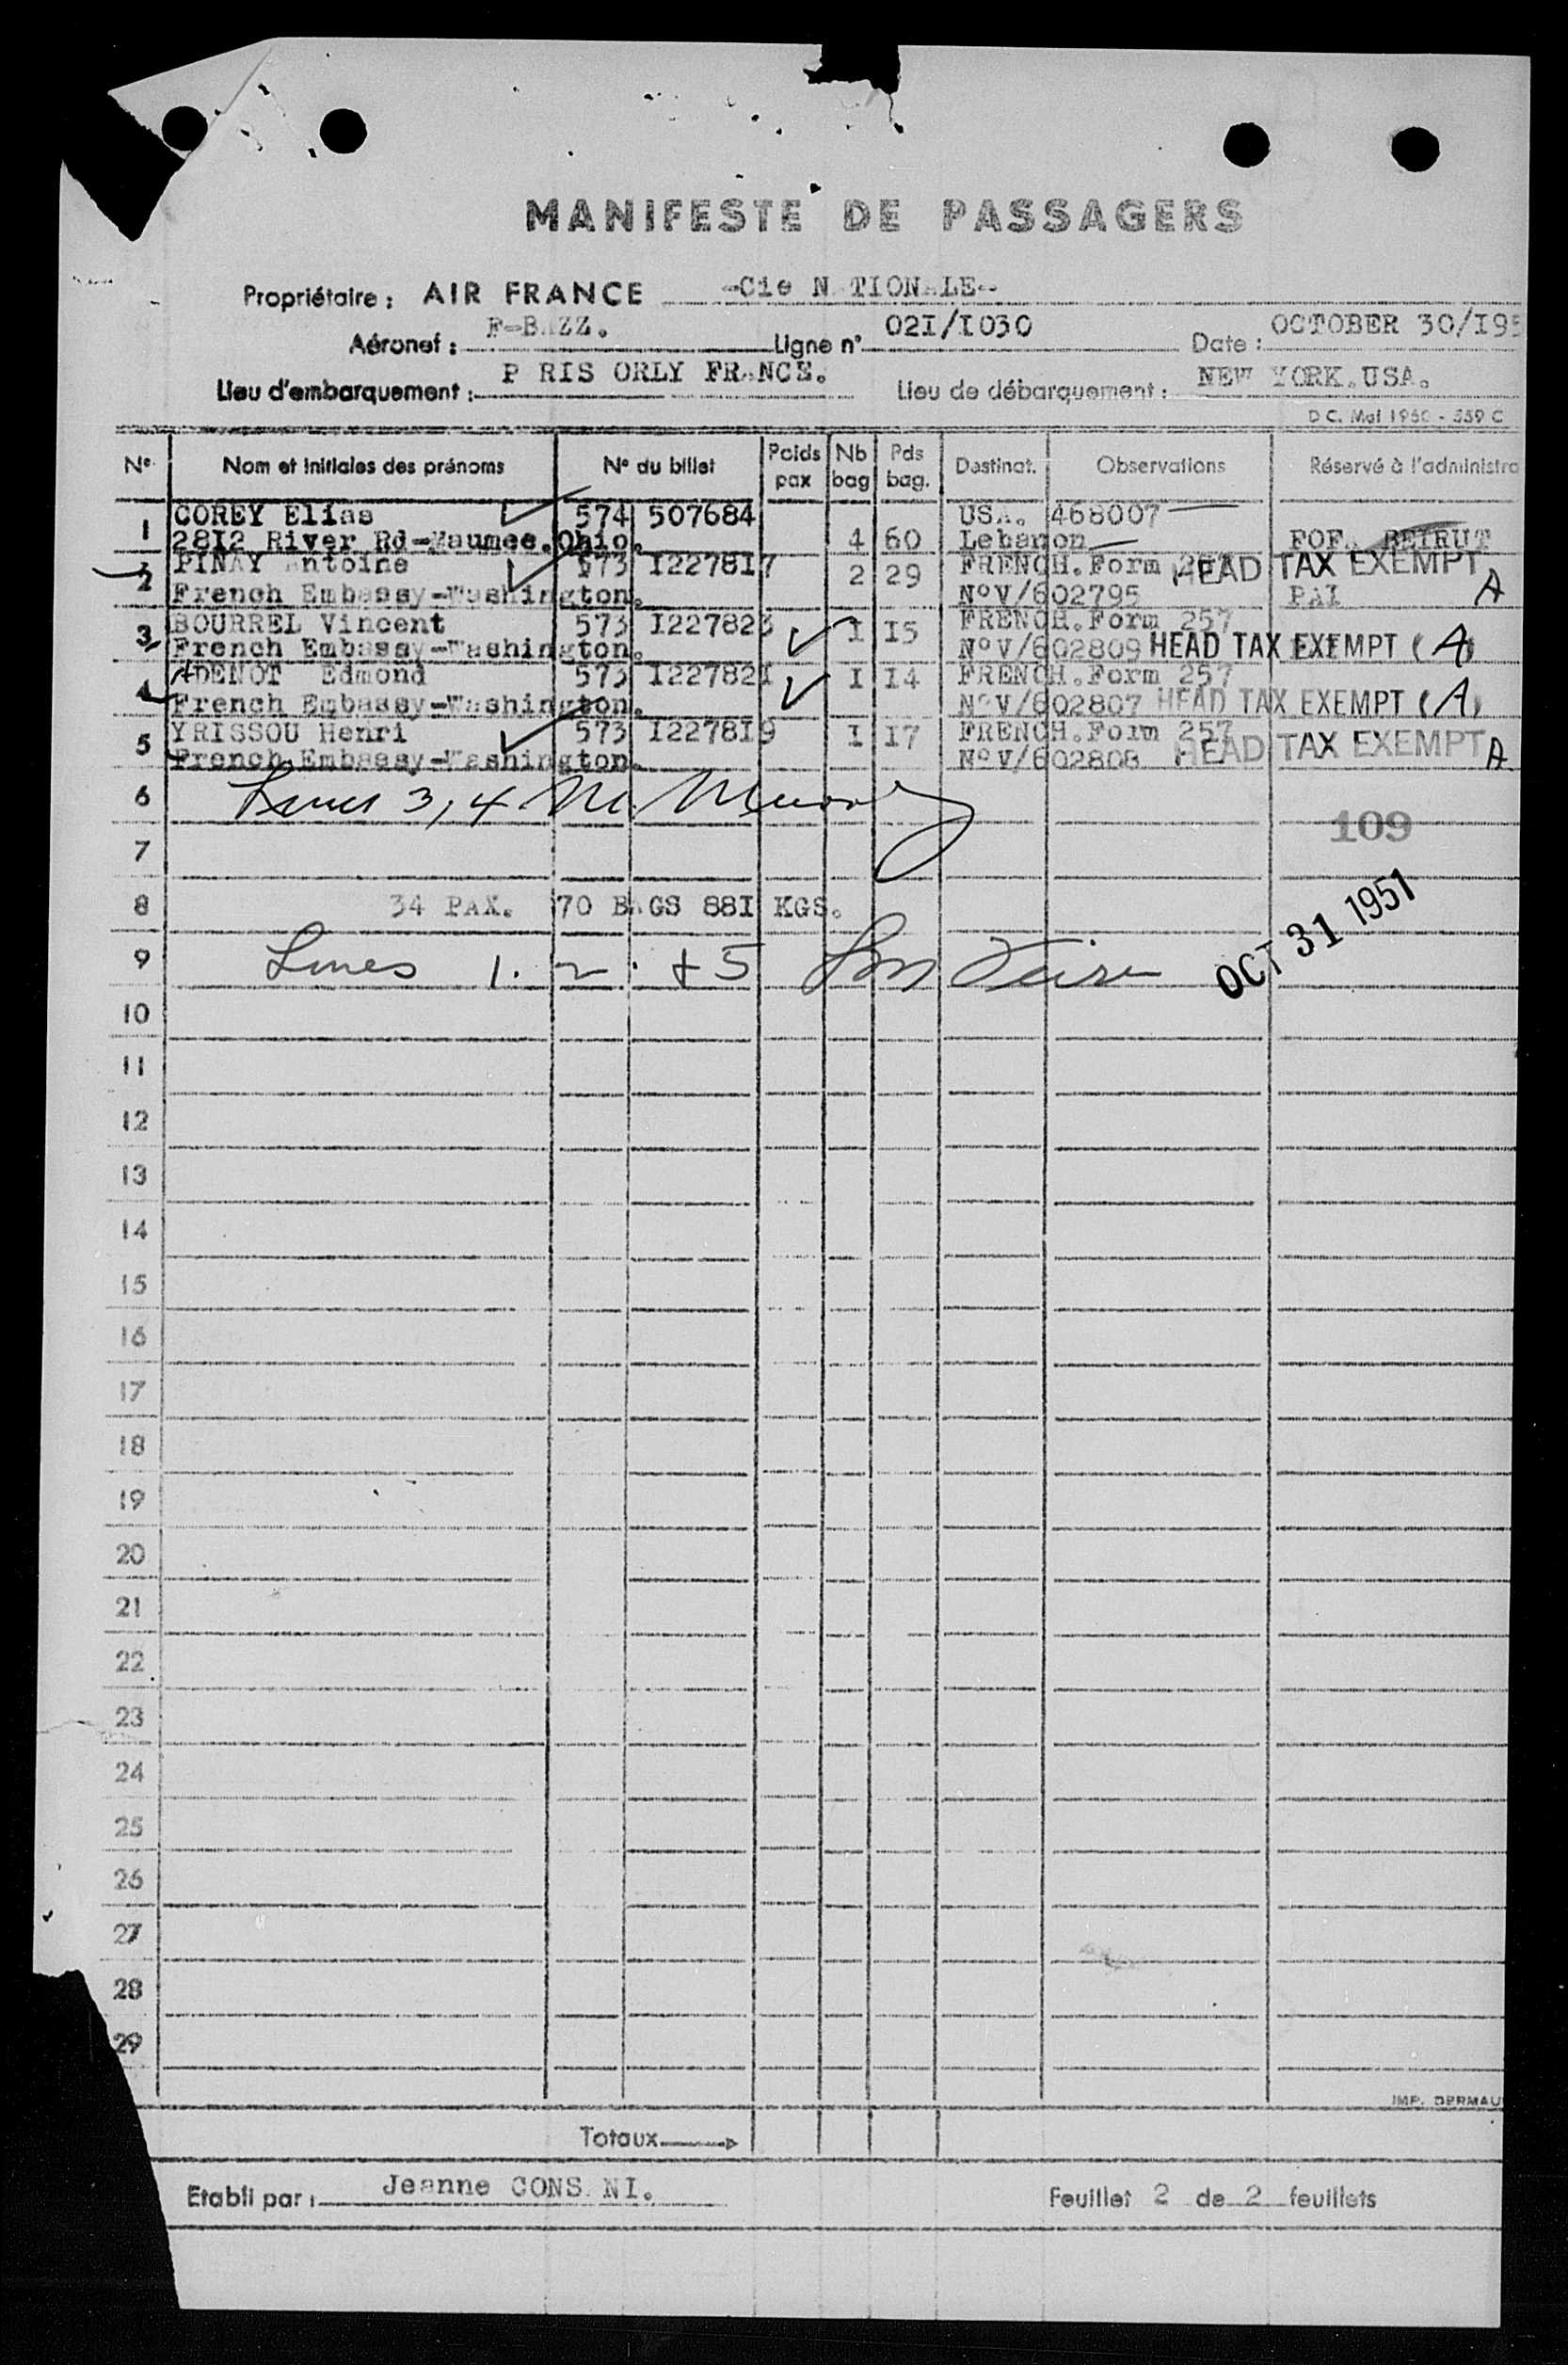 MANIFESTE DE PASSAGERS
Propriétaire : AIR FRANCE -Cie N TION LE-
Aéronef : F-BAZZ. Ligne n° 02I/I030 Date : OCTOBER 30/I95
Lieu d'embarquement : P RIS ORLY FRANCE. Lieu de débarquement : NEW YORK.USA.
D C. Mai 1950 - 559 C
N° Nom et initiales des prénoms N° du billet Poids pax Nb bag Pds bag. Destinat. Observations Réservé à l'administra
1 COREY Elias 574 507684 USA. 468007
28I2 River Rd-Maumee.Ohio. 4 60 Lebanon BEIRUT
2 PINAY Antoine 573 I2278I7 2 29 FRENCH.Form 257 HEAD TAX EXEMPT
French Embassy-Washington. N°V/602795 PAI A
3 BOURREL Vincent 573 I227823 I I5 FRENCH.Form 257
French Embassy-Washington. N°V/602809 HEAD TAX EXEMPT (A)
4 DENOT Edmond 573 I22782I I I4 FRENCH.Form 257
French Embassy-Washington. N°V/602807 HEAD TAX EXEMPT (A)
5 YRISSOU Henri 573 I2278I9 I I7 FRENCH.Form 257
French Embassy-Washington. N°V/602808 HEAD TAX EXEMPT A
6 Lines 3, 4 M.
109
7
8 34 PAX. 70 BAGS 88I KGS.
OCT 31 1951
9 Lines 1. 2. + 5
10
11
12
13
14
15
16
17
18
19
20
21
22
23
24
25
26
27
28
29
IMP. DERMAU
Totaux
Etabli par : Jeanne CONS NI. Feuillet 2 de 2 feuillets